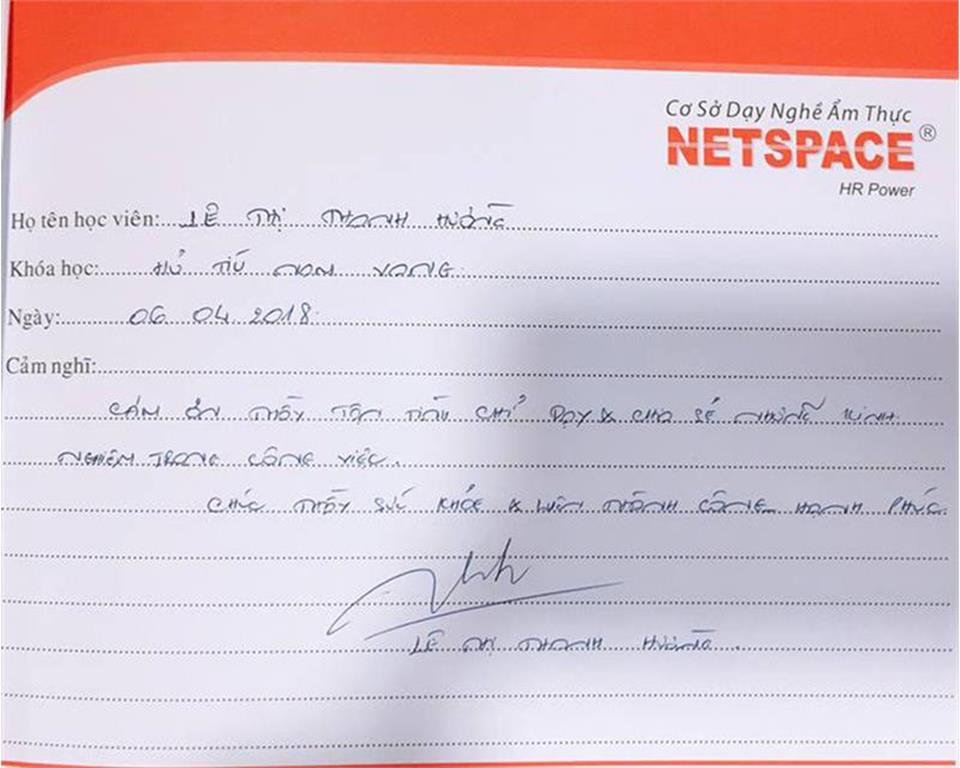 Cơ Sở Dạy Nghề Ẩm Thực
NETSPACE®
HR Power
Họ tên học viên: LÊ THỊ THANH HƯƠNG
Khóa học: HỦ TIẾU NAM VANG.
Ngày: 06.04.2018.
Cảm nghĩ:
CÁM ƠN THẦY TẬN TÌNH CHỈ DẠY & CHIA SẺ NHỮNG KINH
NGHIỆM TRONG CÔNG VIỆC.
CHÚC THẦY SỨC KHỎE & LUÔN THÀNH CÔNG HẠNH PHÚC.
LÊ THỊ THANH HƯƠNG.